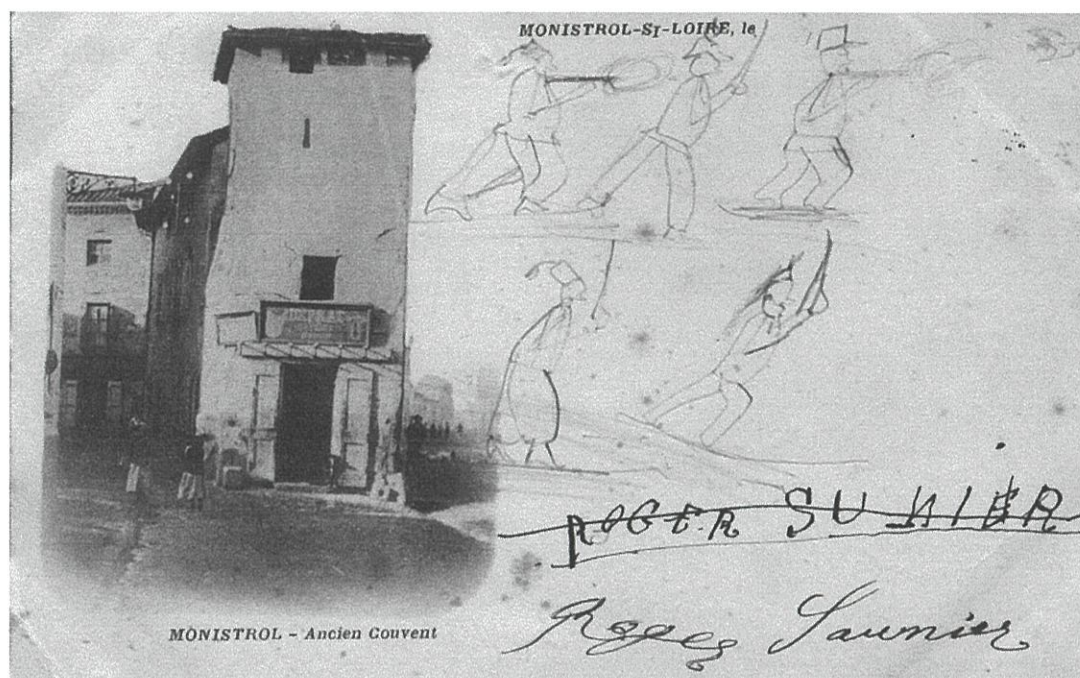 MONISTROL-SI-LOIRE, le
ROGER SUNIER
Roger Saunier
MONISTROL - Ancien Couvent